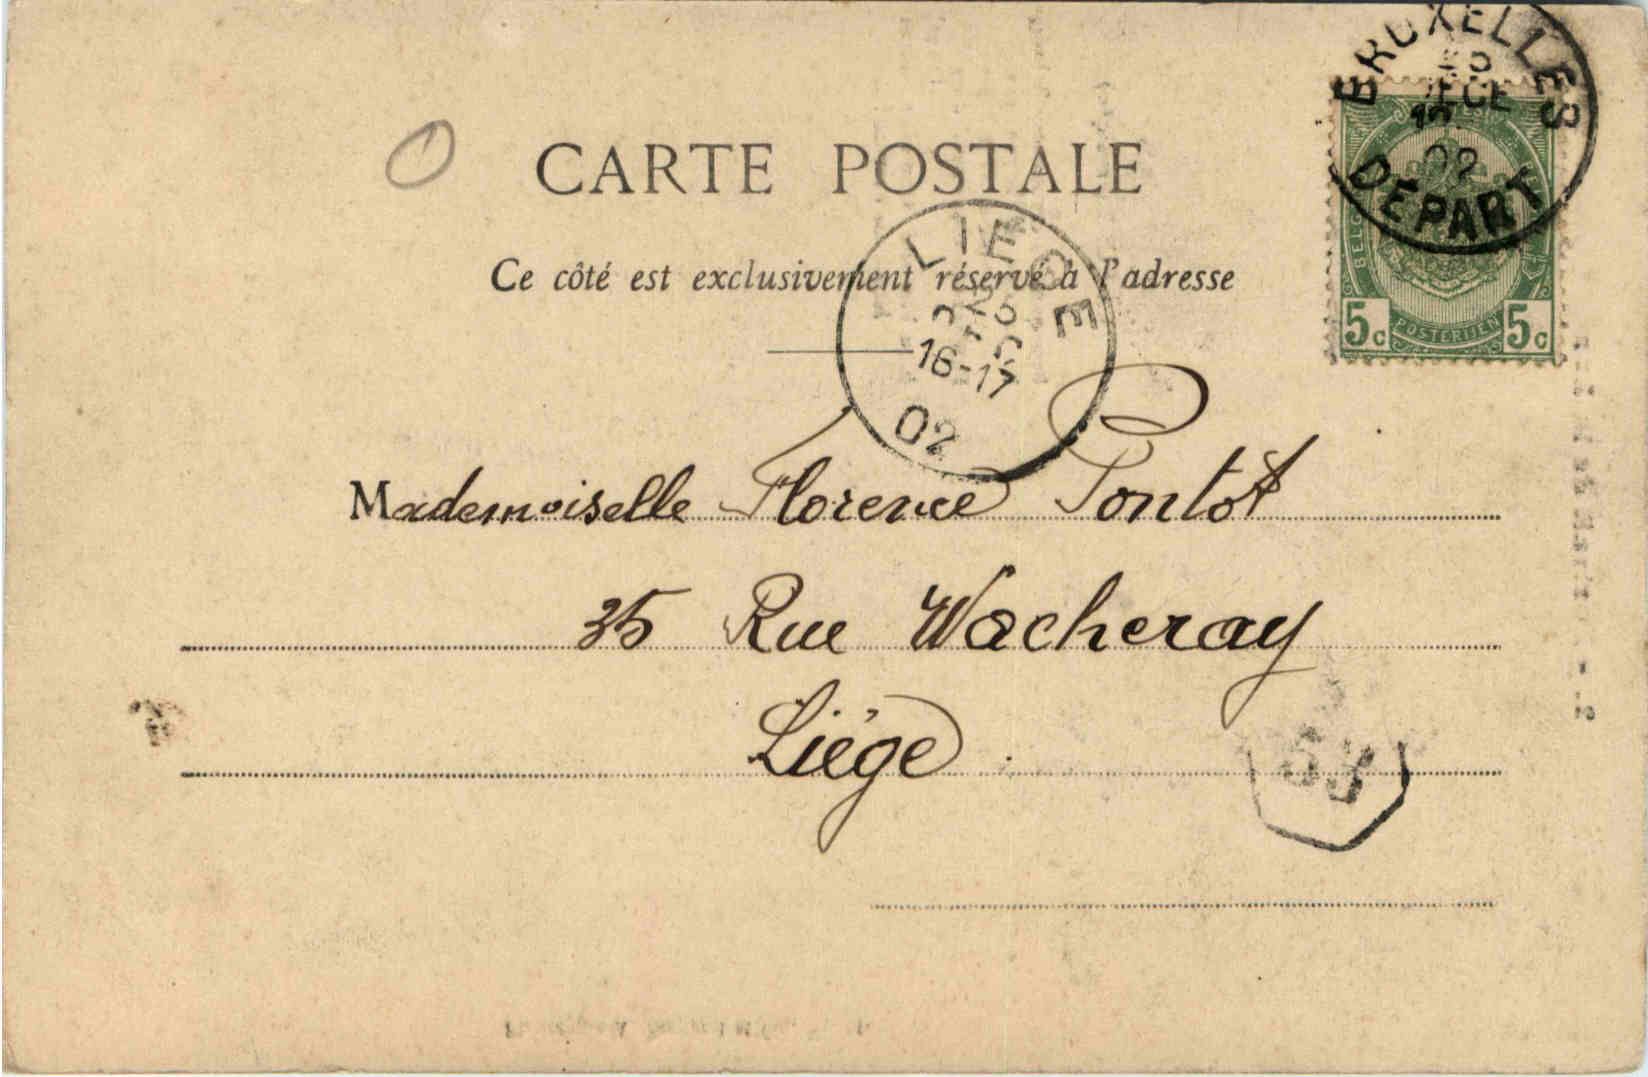 BRUXELLES
DECE
02
DEPART
5c POSTERIJEN 5c
CARTE POSTALE
Ce côté est exclusivement réservé à l'adresse
LIEGE
25
DEC
16-17
02
Mademoiselle Florence Pontot
35 Rue Wacheray
Liége
53